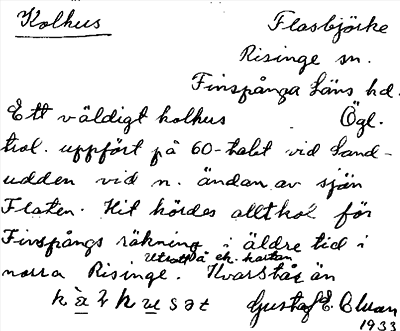 Kolhus
Flasbjörke
Risinge sn.
Finspånga läns hd.
Ett väldigt kolhus Ögl.
trol. uppfört på 60-talet vid Sand-
udden vid n. ändan av sjön
Flaten. Hit kördes allt kol för
Finspångs räkning i äldre tid i
Utsatt å ek. kartan
norra Risinge. Kvarstår än
Gustaf E.
1933